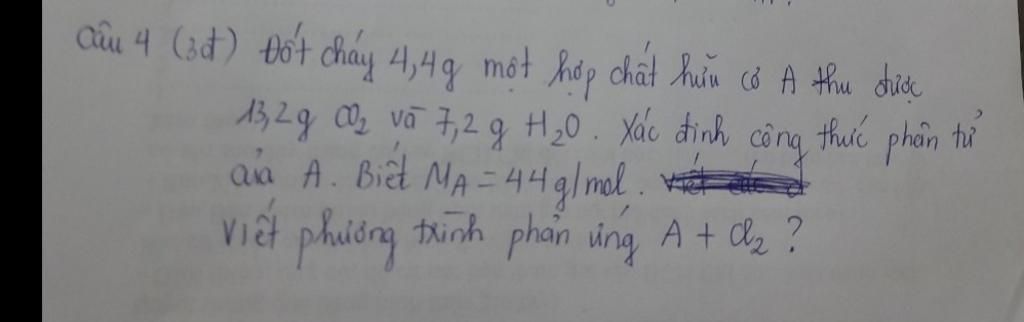 Câu 4 (3đ) Đốt cháy 4,4g một hợp chất hữu cơ A thu được
13,2g CO2 và 7,2g H2O. Xác định công thức phân tử
của A. Biết MA = 44g/mol.
Viết phương trình phản ứng A + Cl2?